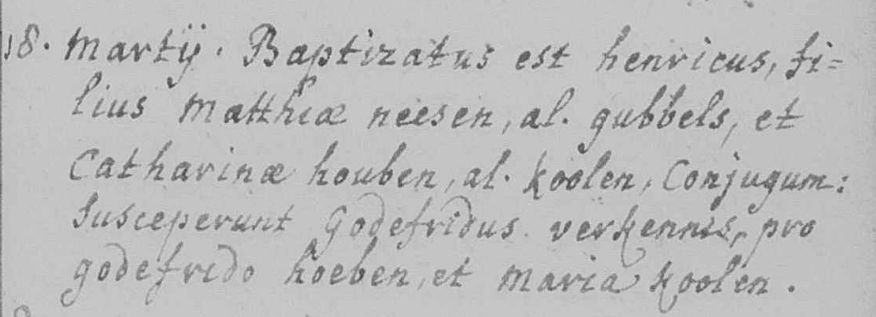 18. Martij. Baptizatus est henricus, fi=
lius Matthiæ neesen, al. gubbels, et
Catharinæ houben, al. koolen, Conjugum:
Susceperunt Godefridus verkennis, pro
godefrido hoeben, et Maria koolen.